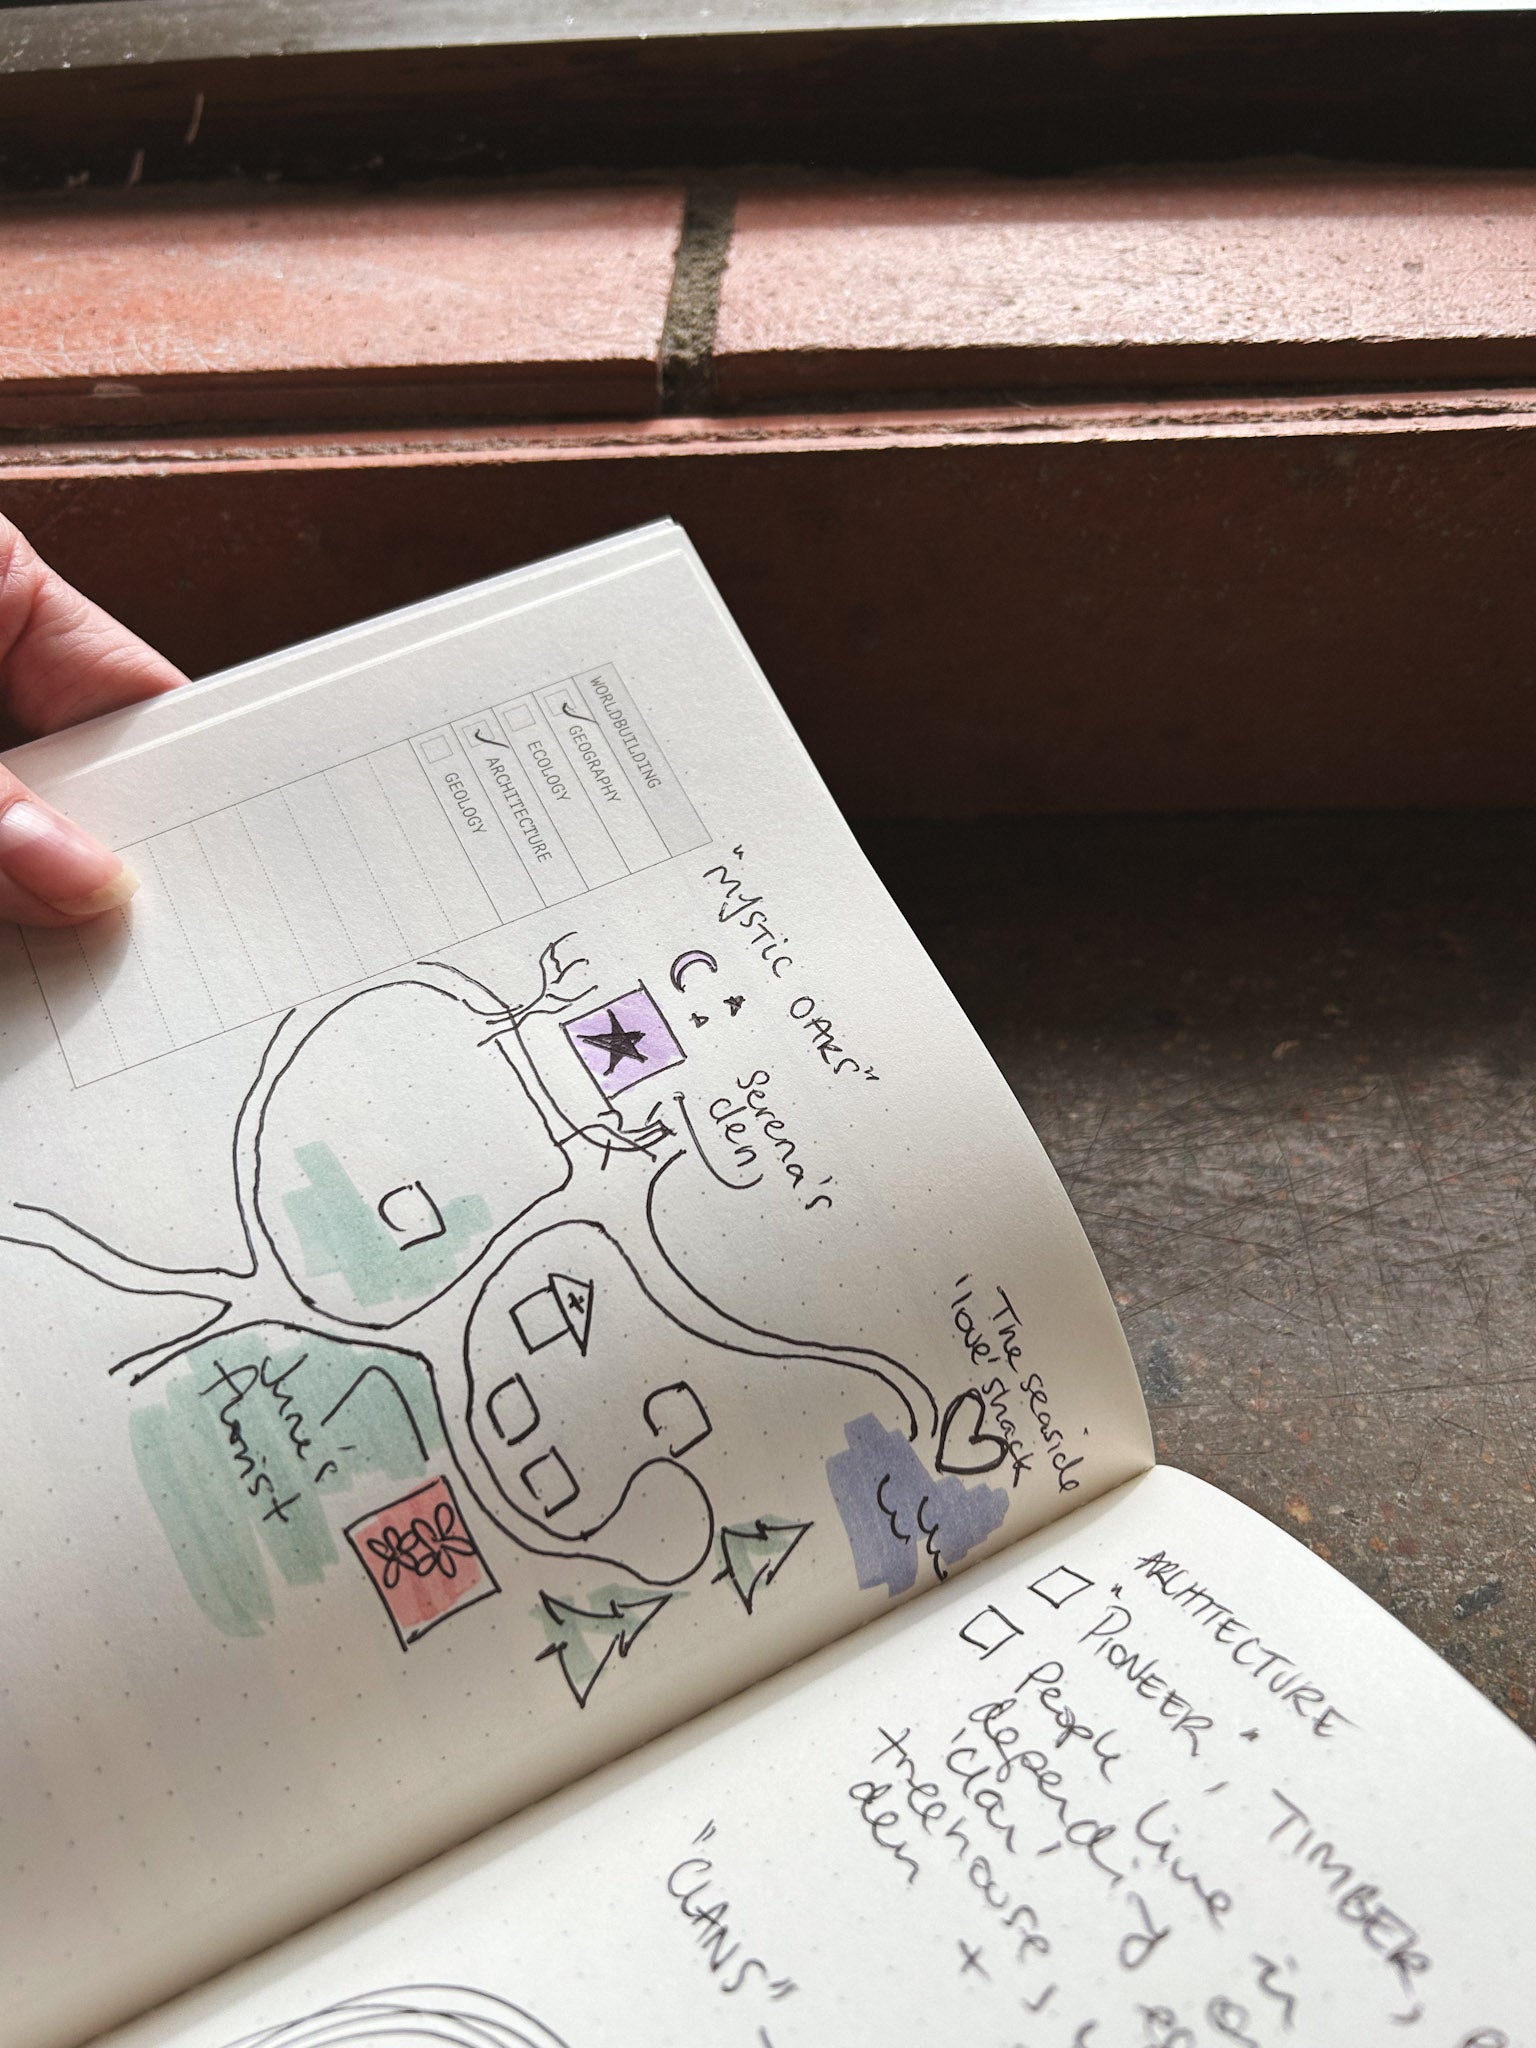 WORLDBUILDING
GEOGRAPHY
ECOLOGY
ARCHITECTURE
GEOLOGY
"MYSTIC OAKS"
Serena's
den
The seaside
'love' shack
June's
florist
ARCHITECTURE
"PIONEER", TIMBER,
People live in
depending
'clan'
treehouse,
den
+
"CLANS"